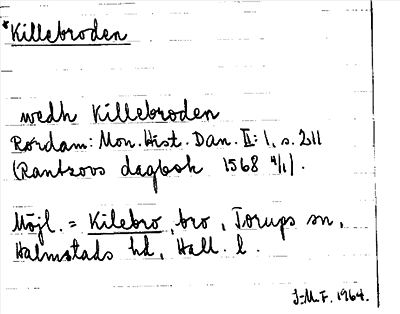 *Killebroden
wedh Killebroden
Rørdam: Mon. Hist. Dan. II: 1, s. 211
(Rantzovs dagbok 1568 4/1).
Möjl. = Kilebro, bro, Torups sn,
Halmstads hd, Hall. l.
J-M.F. 1964.